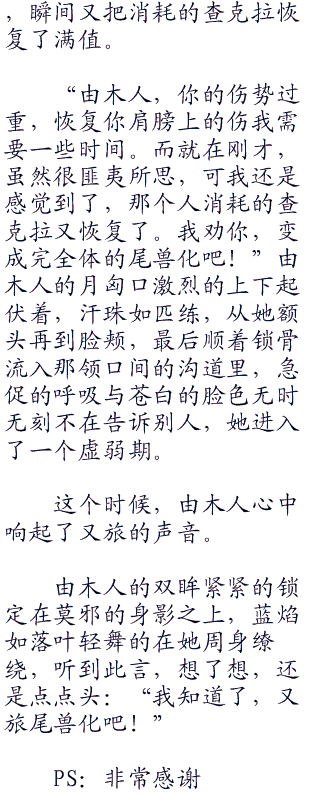 ，瞬间又把消耗的查克拉恢
复了满值。
“由木人，你的伤势过
重，恢复你肩膀上的伤我需
要一些时间。而就在刚才，
虽然很匪夷所思，可我还是
感觉到了，那个人消耗的查
克拉又恢复了。我劝你，变
成完全体的尾兽化吧！”由
木人的月匈口激烈的上下起
伏着，汗珠如匹练，从她额
头再到脸颊，最后顺着锁骨
流入那领口间的沟道里，急
促的呼吸与苍白的脸色无时
无刻不在告诉别人，她进入
了一个虚弱期。
这个时候，由木人心中
响起了又旅的声音。
由木人的双眸紧紧的锁
定在莫邪的身影之上，蓝焰
如落叶轻舞的在她周身缭
绕，听到此言，想了想，还
是点点头：“我知道了，又
旅尾兽化吧！”
PS：非常感谢